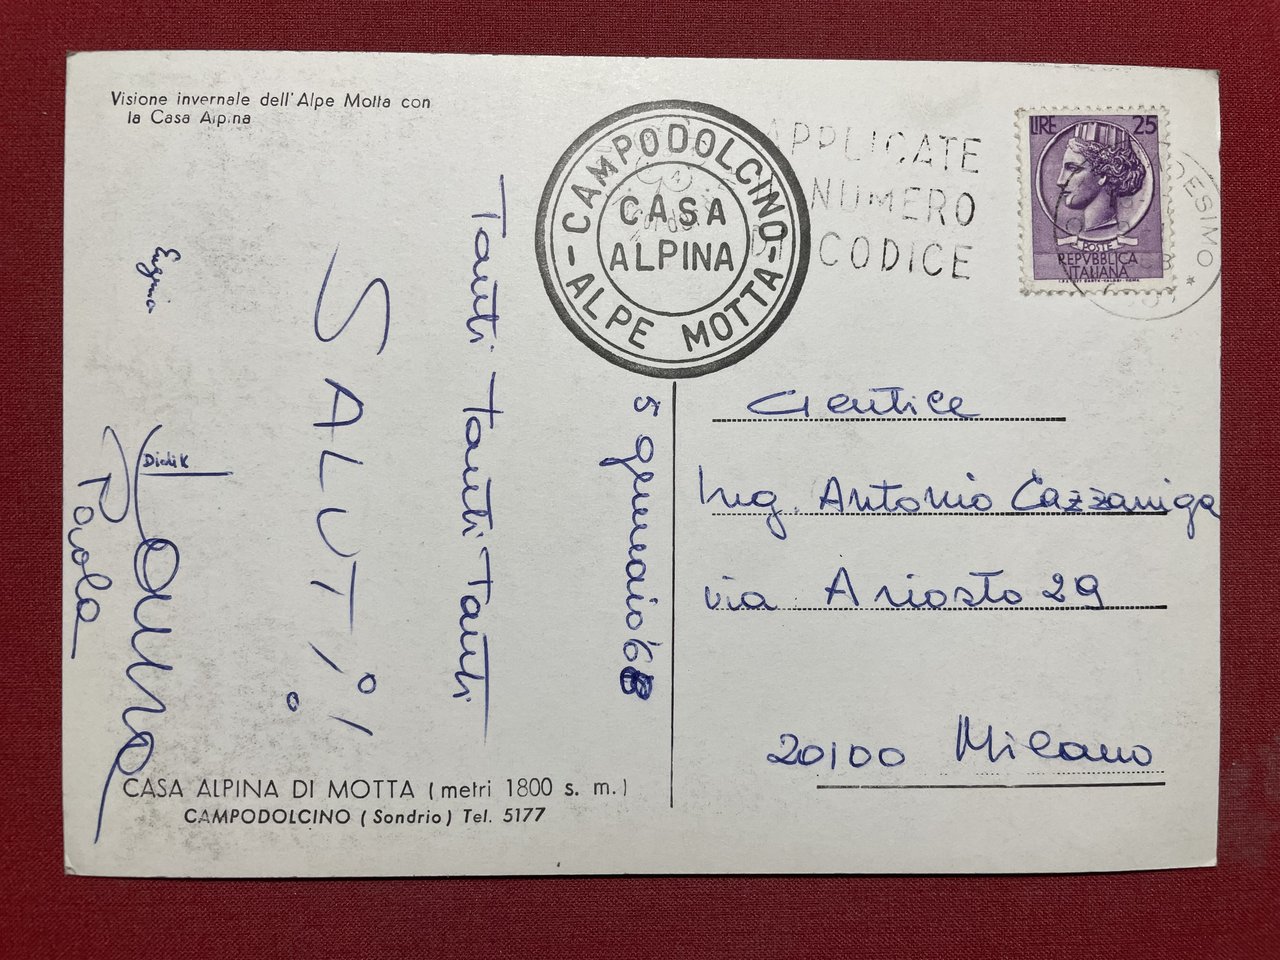 Visione invernale dell'Alpe Motta con
la Casa Alpina
CAMPODOLCINO
CASA
ALPINA
- ALPE MOTTA -
APPLICATE
NUMERO
CODICE
LIRE 25
POSTE
REPVBBLICA
ITALIANA
DESIMO *
5 gennaio '68
Tanti Tanti Tanti
SALUTI!
Eugenia
Paola
Gentile
Ing. Antonio Cazzaniga
via Ariosto 29
20100 Milano
CASA ALPINA DI MOTTA (metri 1800 s. m.)
CAMPODOLCINO (Sondrio) Tel. 5177